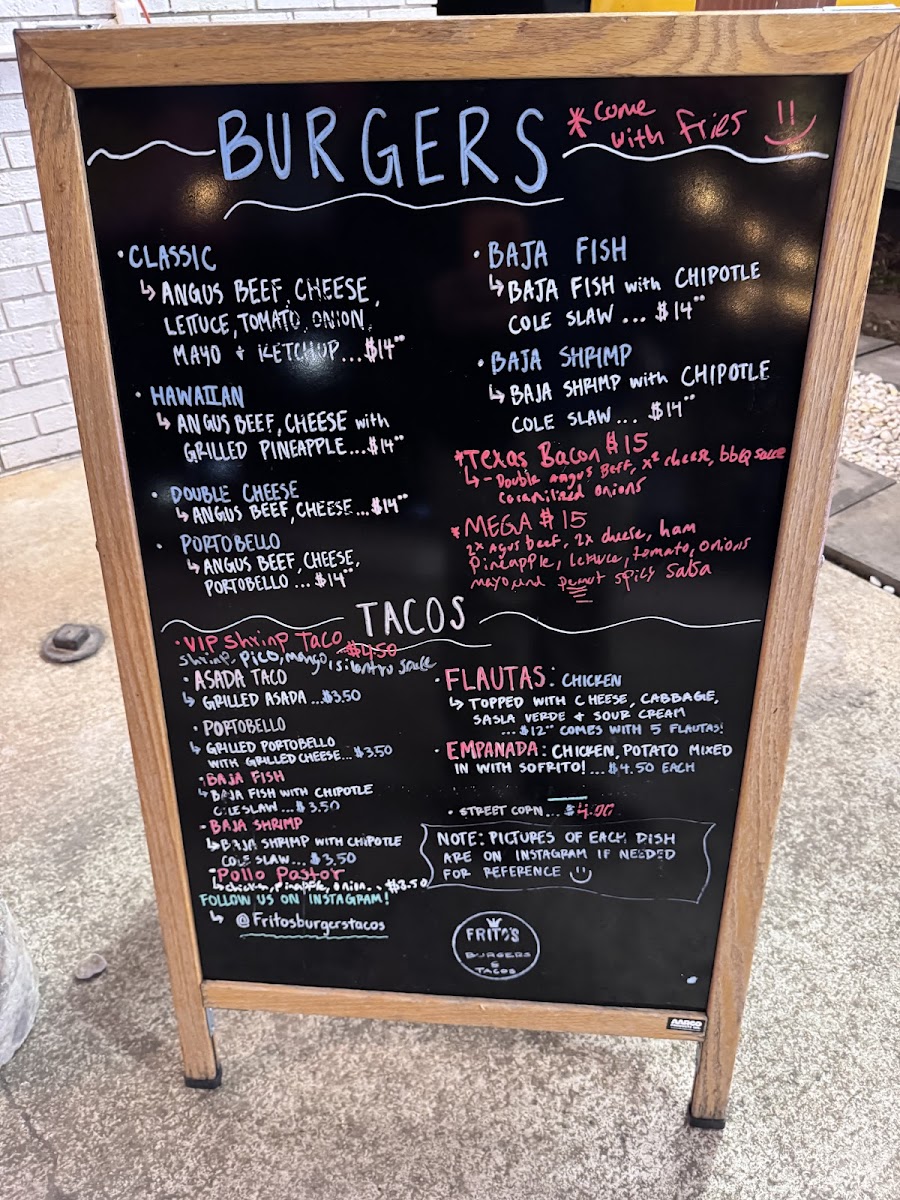 BURGERS
*Come
with Fries
• CLASSIC
↳ ANGUS BEEF, CHEESE,
LETTUCE, TOMATO, ONION,
MAYO + KETCHUP...$14⁰⁰
• HAWAIIAN
↳ ANGUS BEEF, CHEESE with
GRILLED PINEAPPLE...$14⁰⁰
• DOUBLE CHEESE
↳ ANGUS BEEF, CHEESE...$14⁰⁰
• PORTOBELLO
↳ ANGUS BEEF, CHEESE,
PORTOBELLO ... $14⁰⁰
• BAJA FISH
↳ BAJA FISH with CHIPOTLE
COLE SLAW ... $14⁰⁰
• BAJA SHRIMP
↳ BAJA SHRIMP with CHIPOTLE
COLE SLAW ... $14⁰⁰
*Texas Bacon $15
↳ - Double Angus Beff, x² cheese, bbq sauce
caramilized onions
*MEGA $15
2x Agus beef, 2x cheese, ham
Pineapple, lettuce, tomato, onions
mayo and spicy Salsa
TACOS
• VIP Shrimp Taco $4.50
Shrimp, PICO, mango, silantro sauce
• ASADA TACO
↳ GRILLED ASADA ...$3.50
• PORTOBELLO
↳ GRILLED PORTOBELLO
WITH GRILLED CHEESE...$3.50
• BAJA FISH
↳ BAJA FISH WITH CHIPOTLE
COLE SLAW...$3.50
• BAJA SHRIMP
↳ BAJA SHRIMP WITH CHIPOTLE
COLE SLAW...$3.50
• Pollo Pastor
↳ chicken, Pineapple, onion..$3.50
FOLLOW US ON INSTAGRAM!
↳ @Fritosburgerstacos
• FLAUTAS: CHICKEN
↳ TOPPED WITH CHEESE, CABBAGE,
SASLA VERDE + SOUR CREAM
...$12⁰⁰ COMES WITH 5 FLAUTAS!
• EMPANADA: CHICKEN, POTATO MIXED
IN WITH SOFRITO! ...$4.50 EACH
• STREET CORN...$4.00
NOTE: PICTURES OF EACH DISH
ARE ON INSTAGRAM IF NEEDED
FOR REFERENCE
FRITO'S
BURGERS
&
TACOS
AARCO